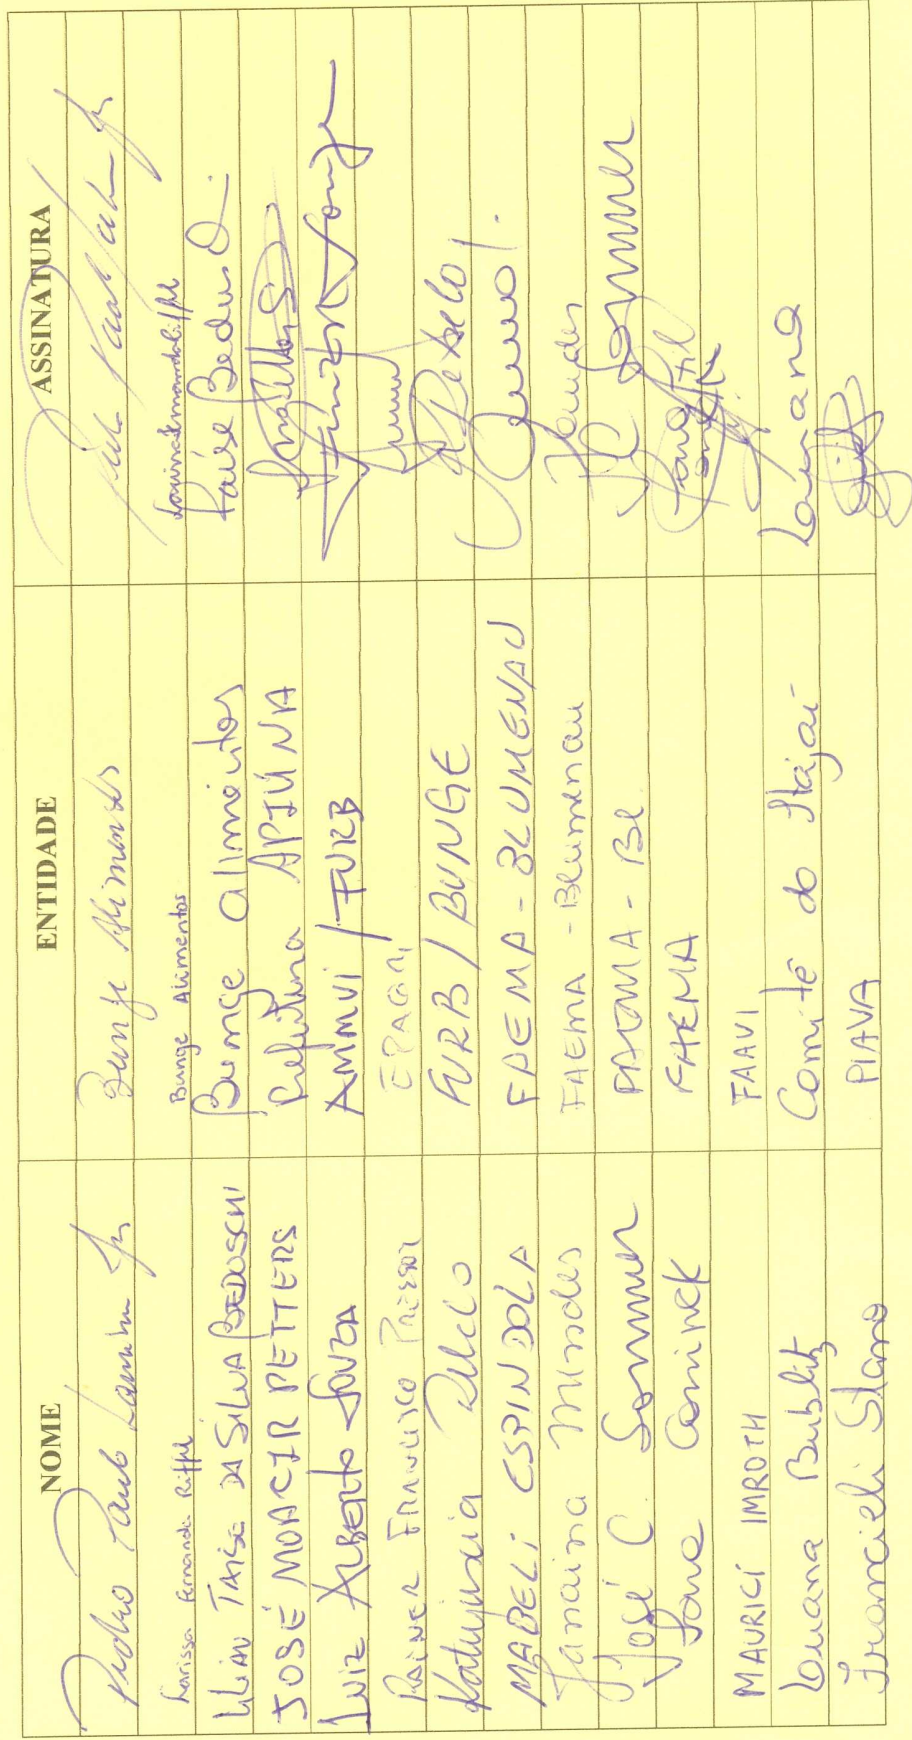 NOME ENTIDADE ASSINATURA
Pedro Paulo Bunge Alimentos
Larissa Fernanda Riffel Bunge Alimentos
Lilian Taíse da Silva Beduschi Bunge Alimentos Taíse Bedusc
JOSÉ MOACIR PETTERS Prefeitura APIÚNA
LUIZ ALBERTO SOUZA AMMVI / FURB
RAINER FRANCISCO EPAGRI
Katiuscia Rebelo FURB / BUNGE Rebelo
MABELI ESPINDOLA FAEMA - BLUMENAU
Janaina Mendes FAEMA - Blumenau Mendes
José C. Sommer FAEMA - Bl. JC Sommer
Cominek FAEMA
MAURICÍ IMROTH FAAVI
Luana Bublitz Comitê do Itajaí Luana
Francieli Stano PIAVA